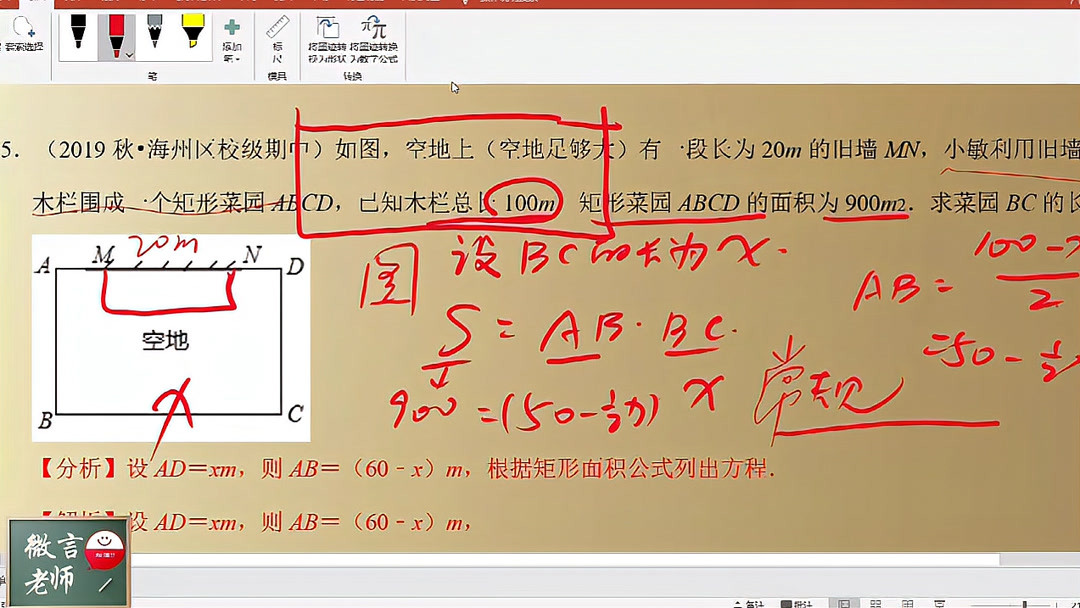 套索选择
添加
笔
标
尺
将墨迹转
换为形状
将墨迹转换
为数学公式
笔
模具
转换
5. (2019 秋•海州区校级期中)如图,空地上(空地足够大)有一段长为 20m 的旧墙 MN,小敏利用旧墙
木栏围成一个矩形菜园 ABCD,已知木栏总长 100m 矩形菜园 ABCD 的面积为 900m2.求菜园 BC 的长
A M 20m N D
空地
B x C
图 设BC的长为x.
S = AB·BC.
900 =(50-½x) x
AB = 100-x/2
=50-½x
常规
【分析】设 AD=xm,则 AB=(60﹣x)m,根据矩形面积公式列出方程.
【解析】设 AD=xm,则 AB=(60﹣x)m,
微言
老师